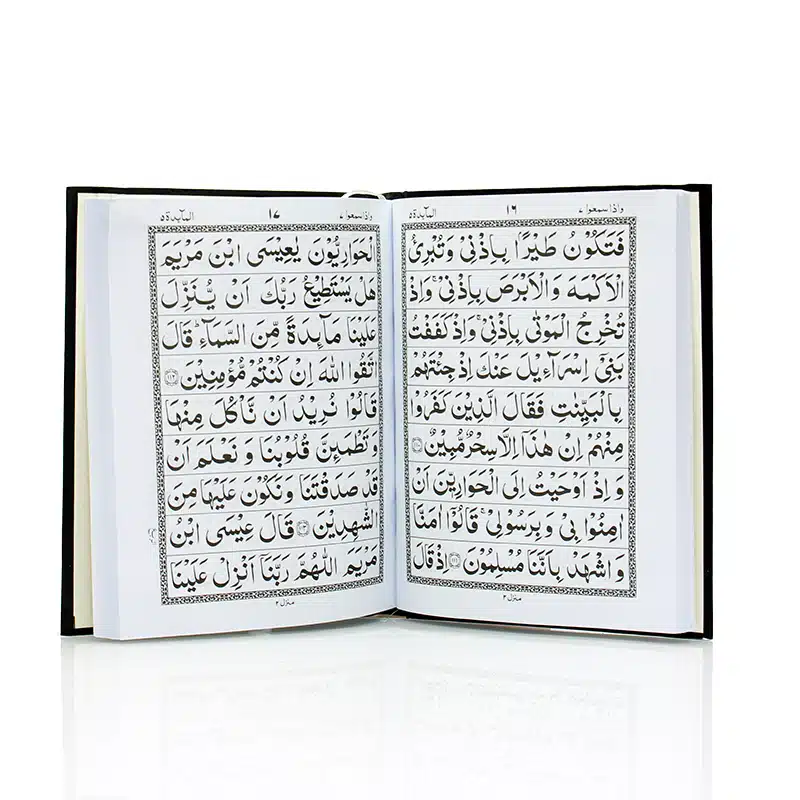 واذا سمعوا ٧ ١٦ المآئدة ٥
فَتَكُوْنُ طَيْرًۢا بِاِذْنِيْ وَتُبْرِئُ
الْاَكْمَهَ وَالْاَبْرَصَ بِاِذْنِيْ ۚ وَاِذْ
تُخْرِجُ الْمَوْتٰى بِاِذْنِيْ ۚ وَاِذْ كَفَفْتُ
بَنِيْٓ اِسْرَآءِيْلَ عَنْكَ اِذْ جِئْتَهُمْ
بِالْبَيِّنٰتِ فَقَالَ الَّذِيْنَ كَفَرُوْا
مِنْهُمْ اِنْ هٰذَآ اِلَّا سِحْرٌ مُّبِيْنٌ
وَ اِذْ اَوْحَيْتُ اِلَى الْحَوَارِيّٖنَ اَنْ
اٰمِنُوْا بِيْ وَ بِرَسُوْلِيْ ۚ قَالُوْٓا اٰمَنَّا
وَ اشْهَدْ بِاَنَّنَا مُسْلِمُوْنَ اِذْ قَالَ
منزل ٢
واذا سمعوا ٧ ١٧ المآئدة ٥
الْحَوَارِيُّوْنَ يٰعِيْسَى ابْنَ مَرْيَمَ
هَلْ يَسْتَطِيْعُ رَبُّكَ اَنْ يُّنَزِّلَ
عَلَيْنَا مَآئِدَةً مِّنَ السَّمَآءِ ؕ قَالَ
اتَّقُوا اللّٰهَ اِنْ كُنْتُمْ مُّؤْمِنِيْنَ ١١٢
قَالُوْا نُرِيْدُ اَنْ نَّاْكُلَ مِنْهَا
وَ تَطْمَئِنَّ قُلُوْبُنَا وَ نَعْلَمَ اَنْ
قَدْ صَدَقْتَنَا وَ نَكُوْنَ عَلَيْهَا مِنَ
الشّٰهِدِيْنَ قَالَ عِيْسَى ابْنُ
مَرْيَمَ اللّٰهُمَّ رَبَّنَآ اَنْزِلْ عَلَيْنَا
منزل ٢